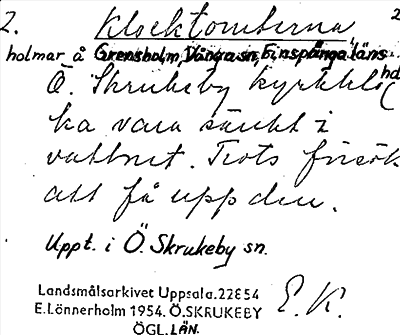 2. Klocktomterna 2
holmar å Grensholm, Vånga sn, Finspånga läns hd
Ö. Skrukeby kyrkklo(
ka vara sänkt i
vattnet. Trots försök
att få upp den.
Uppt. i Ö. Skrukeby sn.
Landsmålsarkivet Uppsala. 22854
E. Lönnerholm 1954. Ö. SKRUKEBY
ÖGL. LÄN.
E. K.